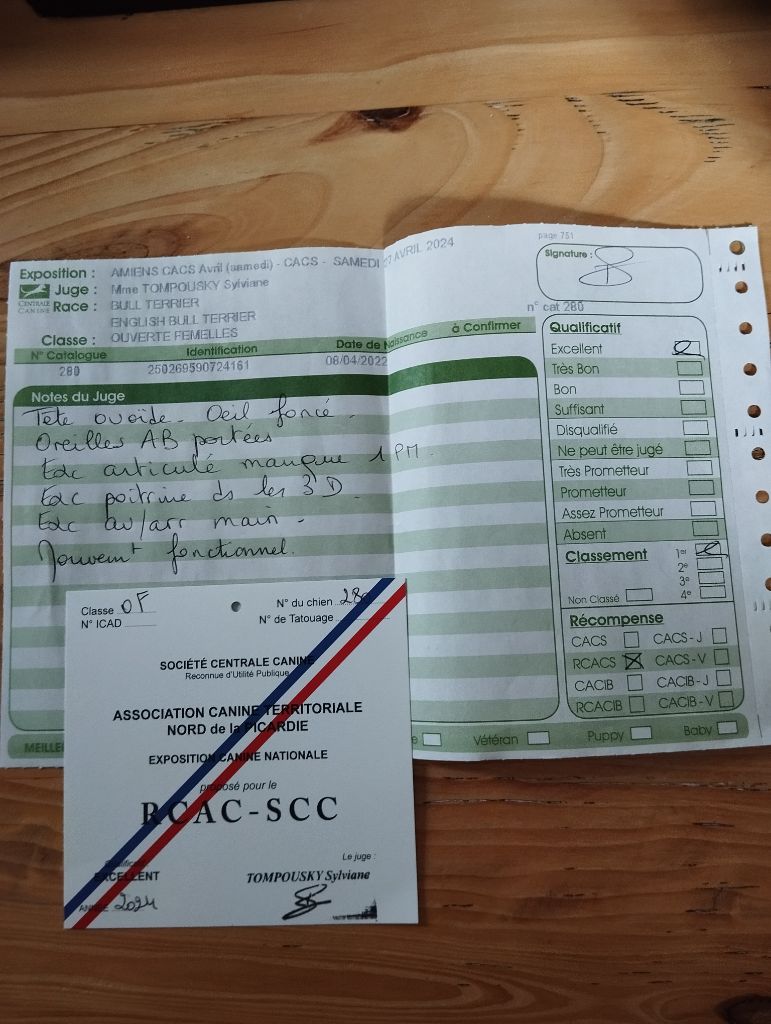 page 751
Exposition : AMIENS CACS Avril (samedi) - CACS - SAMEDI 27 AVRIL 2024
Juge : Mme TOMPOUSKY Sylviane
CENTRALE CANINE
Race : BULL TERRIER
ENGLISH BULL TERRIER
Classe : OUVERTE FEMELLES
Signature :
n° cat 280
N° Catalogue Identification Date de Naissance à Confirmer
280 250269590724161 08/04/2022
Notes du Juge
Tête ovoïde. Oeil foncé.
Oreilles AB portées
Edc articulé manque 1 PM.
Edc poitrine ds les 3 D.
Edc av/arr main.
Mouvemt fonctionnel.
Qualificatif
Excellent
Très Bon
Bon
Suffisant
Disqualifié
Ne peut être jugé
Très Prometteur
Prometteur
Assez Prometteur
Absent
Classement 1er
2e
3e
Non Classé 4e
Récompense
CACS CACS - J
RCACS CACS - V
CACIB CACIB - J
RCACIB CACIB - V
Vétéran Puppy Baby
Classe OF N° du chien 280
N° ICAD N° de Tatouage
SOCIÉTÉ CENTRALE CANINE
Reconnue d'Utilité Publique
ASSOCIATION CANINE TERRITORIALE
NORD de la PICARDIE
EXPOSITION CANINE NATIONALE
proposé pour le
RCAC-SCC
Qualificatif Le juge :
EXCELLENT TOMPOUSKY Sylviane
ANNÉE 2024